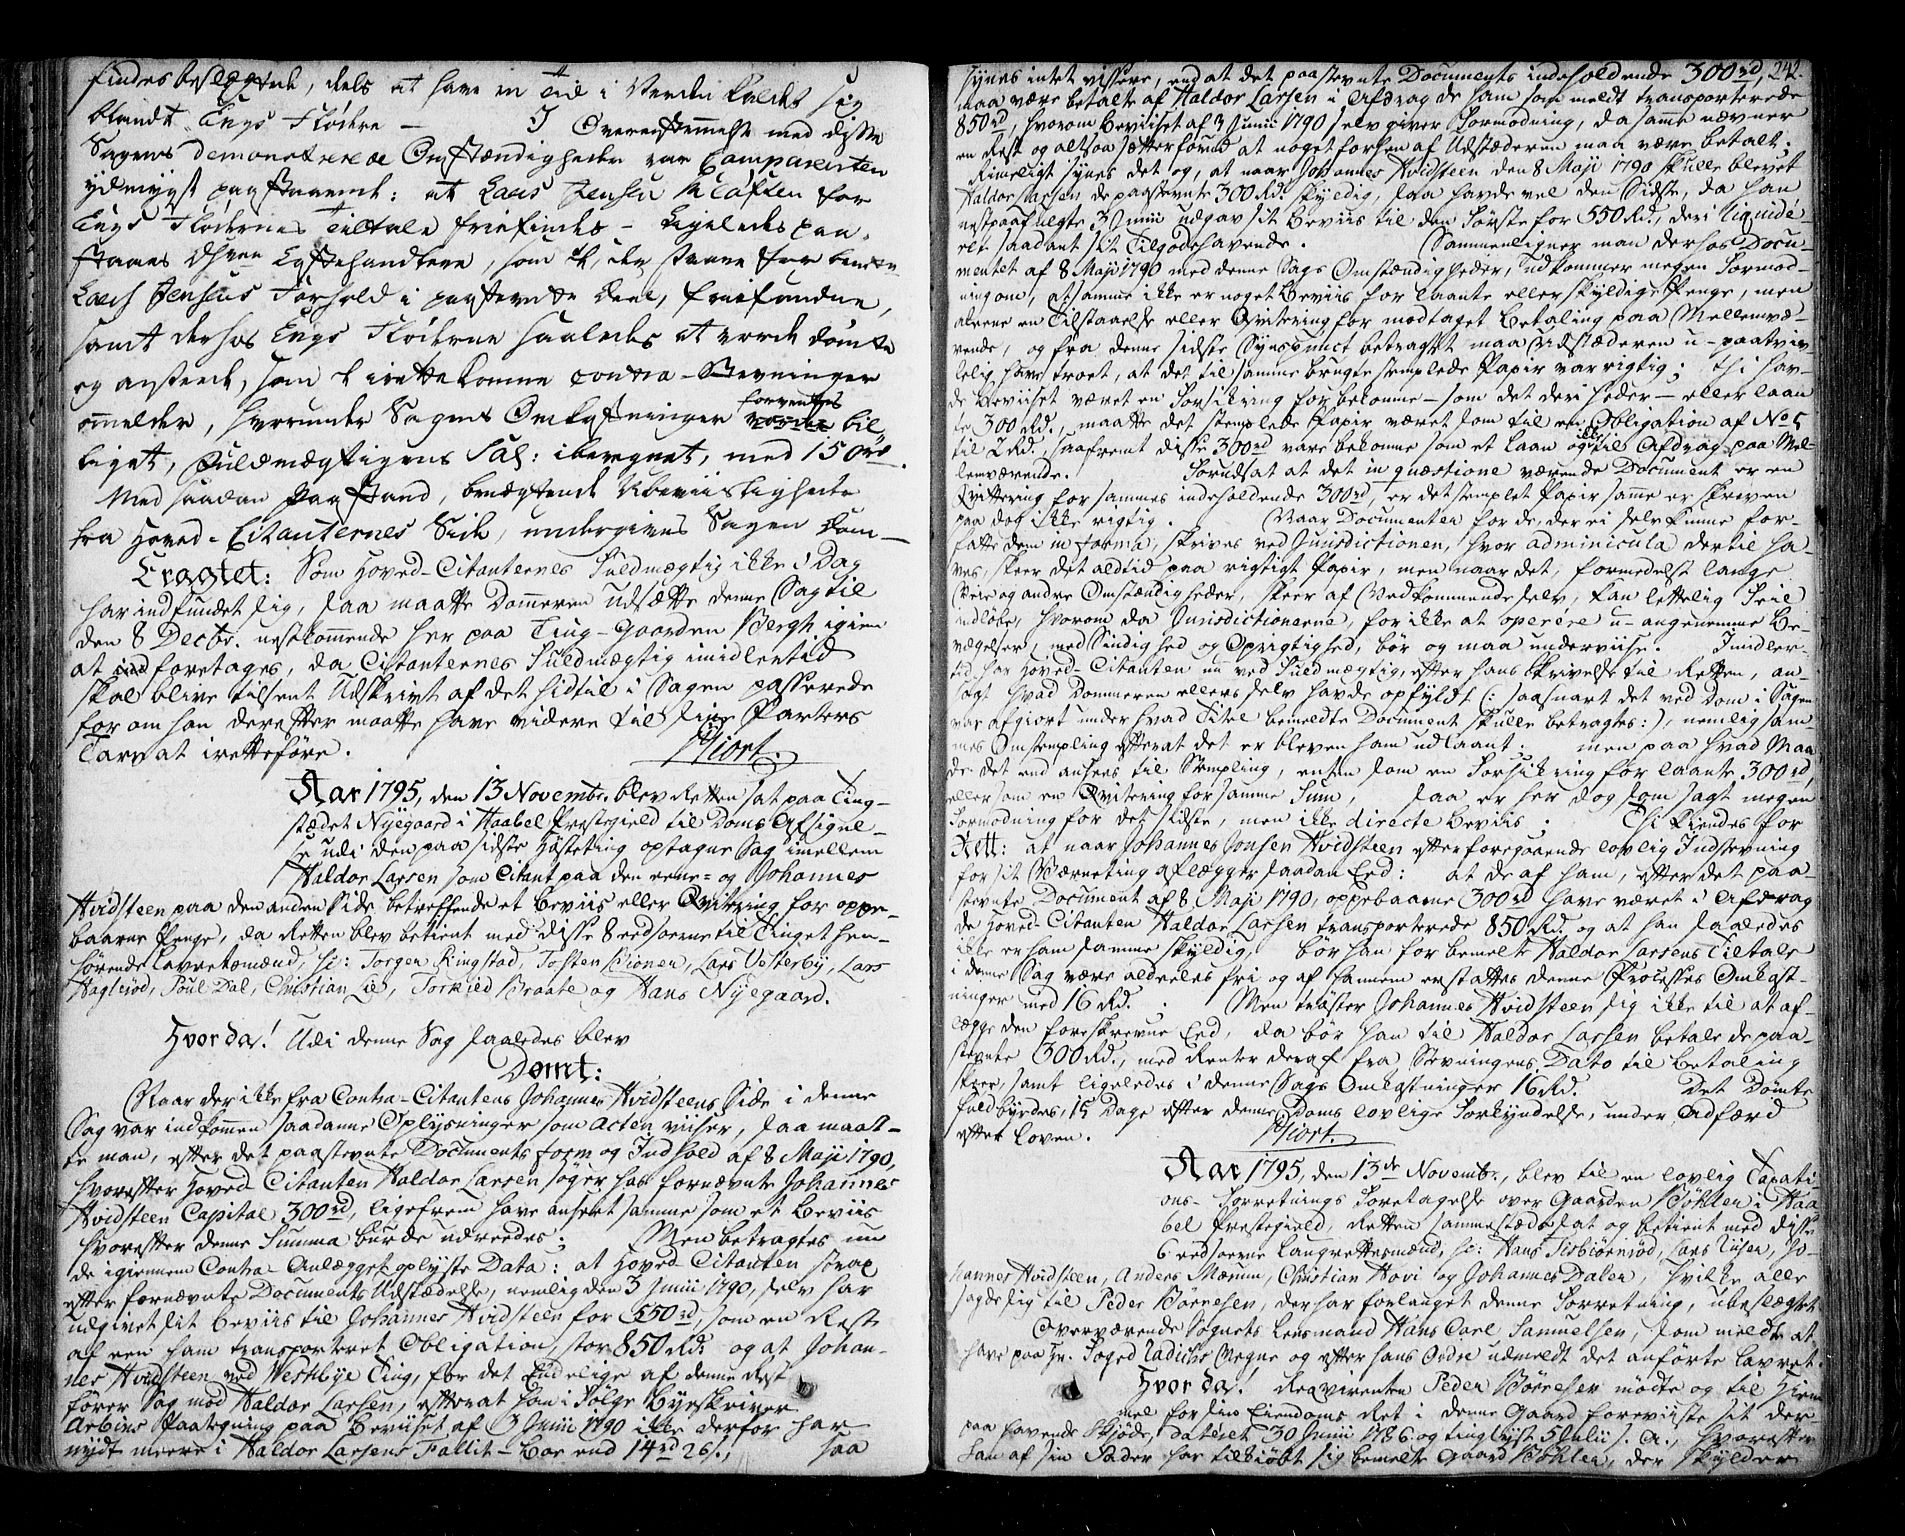 findes beslægtede, dels at have en Tid i Verden kaldet sig
blandt Enys Flödtre — I Overenstemelse med disse
Sagens demonstrerede Omstændigheder var Comparenten
ydmygst paastaaende: at Lars Jensen Kloften for
Enys Flödternes Tiltale friefindes — Ligeledes paa-
staaes
Lars Jensens Forhold i paastevnte Deel, friefunden,
samt derhos Enys Flödterne saaledes at vorde dömte
og anseede, som i rettekomne contra-Stevninger
ommelder, hvorunder Sagens Omkostninger forventes bil-
liget, Fuldmægtigens Sal: iberegnet, med 150rd.
Med saadan Paastand, benægtende Ubeviisligheder
fra Hoved-Citanternes Side, undergives Sagen Dom —
Eragtet: Som Hoved-Citanternes Fuldmægtig ikke i Dag
har indfundet sig, saa maatte Dommeren udsætte denne Sag til
den 8 Decbr. nestkommende her paa Ting-Gaarden Bergh igien
at foretages, da Citanternes Fuldmægtig imidlertid
skal blive tilsent Udskrivt af det hidtil i Sagen passerede
for om han derefter maatte have videre til sine Parters
Tarv at iretteföre.
Hiort.
Aar 1795, den 13 Novembr. blev Retten sat paa Ting-
stædet Nyegaard i Haabel Prestegield til Doms Afsigel-
se udi den paa sidste Hösteting optagne Sag imellem
Haldor Larsen som Citant paa den eene- og Johannes
Hvidsteen paa den anden Side betreffende et Beviis eller Qvitering for oppe-
baarne Penge, da Retten blev betient med disse 8 eedsoerne til Tinget hen-
hörende Lavrettemænd, sc: Jorgen Ringstad, Tosten Lionen, Lars Vesterby, Lars
Hagleröd, Poul Dal, Christian Lie, Torkild Braate og Hans Nyegaard.
Hvor da! Udi denne Sag saaledes blev
Dömt:
Naar der ikke fra Contra-Citantens Johannes Hvidsteens Side i denne
Sag var indkommen saadanne Oplysninger som Acten viiser, saa maat-
te man, efter det paastevnte Documents form og Indhold af 8 Maji 1790,
hvorefter Hoved Citanten Haldor Larsen söger hos fornævnte Johannes
Hvidsteen Capital 300rd, ligefrem have anseet samme som et Beviis
hvorefter denne Summa burde udreedes; Men betragtes nu
de igiennem Contra-Anlægget oplyste Data: at Hoved Citanten strax
efter fornævnte Documents Udstædelse, nemlig den 3 Junii 1790, selv har
udgivet sit Beviis til Johannes Hvidsteen for 550rd, som en Rest
af een ham transporteret Obligation, stor 850 Rd. og at Johan-
nes Hvidsteen ved Westbye Ting, for det Endelige af denne Rest
förer Sag mod Haldor Larsen, efterat han i Fölge Byeskriver
Arbins Paategning paa Beviset af 3 Junii 1790 ikke derfor har
nydt meere i Haldor Larsens Fallit-Boe end 14rd 26s., saa
synes intet vissere, end at det paastevnte Documents indeholdende 300rd, 242.
maa være betalte af Haldor Larsen i Afdrag de ham som meldt transporterede
850rd, hvorom Beviiset af 3 Junii 1790 selv giver Formodning, da samme nævner
en Rest og altsaa sætter forud at noget forhen af Udstæderen maa være betalt.
Rimeligt synes det og, at naar Johannes Hvidsteen den 8 Maji 1790 skulle blevet
Haldor Larsen, de paastevnte 300 Rd. skyldig, saa havde vel den Sidste, da han
nestpaafulgte 3 Junii udgav sit Beviis til den Første for 550 Rd., deri liquide-
ret saadant sit Tilgodehavende. Sammenligner man derhos Docu-
mentet af 8 Maji 1790 med denne Sags Omstændigheder, udkommer megen Formod-
ning om, at samme ikke er noget Beviis for laante eller skyldige Penge, men
alleene en Tilstaaelse eller Qvitering for modtaget Betaling paa Mellemvæ-
rende, og fra denne sidste Synspunct betragtet maa Udstæderen u-paatviv-
lelig have troet, at det til samme brugte stemplede Papir var rigtig; thi hav-
de Beviiset været en Forsikring for bekomne — som det deri heder — eller laan
te 300 Rd., maatte det stemplede Papir været som til en Obligation af No 5
til 2 Rd., saafremt disse 300rd vare bekomne som et Laan og ei til Afdrag paa Mel-
lemværende. Forudsat at det in qvæstione værende Document er en
Qvittering for sammes indeholdende 300rd, er det stemplet Papir samme er skreven
paa dog ikke rigtig. Naar Documenter for de, der ei selv kunne for-
fatte dem in forma, skrives ved Jurisdictionen, hvor adminicula dertil ha-
ves, skeer det altid paa rigtigt Papir, men naar det, formedelst lange
Veie og andre Omstændigheder, skeer af Vedkommende selv, kan lettelig Feil
indlöbe, hvorom da Jurisdictionerne, for ikke at operere u-angenemme Be-
vægelser, med Sindighed og Oprigtighed, bör og maa underviise. Imidler-
tid har Hoved-Citanten nu ved Fuldmægtig, efter hans Skrivelse til Retten, an-
sagt hvad Dommeren ellers selv havde opfyldt (: saasnart det ved Dom i Sagen
var afgiort under hvad Titel bemeldte Document skulle betragtes:), nemlig sam-
mes Omstempling efterat det er bleven ham udlaant; men paa hvad Maa-
de det end ansees til Stempling, enten som en Forsikring for laante 300rd,
eller som en Qvitering for samme Sum, saa er her dog som sagt megen
Formodning for det sidste, men ikke directe Beviis; Thi kiendes for
Rett: at naar Johannes Jonsen Hvidsteen efter foregaaende lovlig Indstevning
for sit Værneting aflægger saadan Eed: at de af ham, efter det paa-
stevnte Document af 8 Maji 1790, oppebaarne 300rd have været i Afdrag
de Hoved-Citanten Haldor Larsen transporterede 850 Rd. og at han saaledes
ikke er ham samme skyldig, bör han for bemelte Haldor Larsens Tiltale
i denne Sag være aldeeles fri og af hannem erstattes denne Processes Omkost-
ninger med 16 Rd. Men tröster Johannes Hvidsteen sig ikke til at af-
lægge den foreskrevne Eed, da bör han til Haldor Larsen betale de paa-
stevnte 300 Rd., med Renter deraf fra Stevningens Dato til Betaling
skeer, samt ligeledes i denne Sags Omkostninger 16 Rd. Det Dömte
fuldbyrdes, 15 Dage efter denne Doms lovlige Forkyndelse, under Adfærd
efter Loven.
Hiort.
Aar 1795, den 13de Novembr., blev til en lovlig Taxati-
ons-Forretnings Foretagelse over Gaarden Böhler i Haa-
bel Prestegield, Retten sammesteds sat og betient med disse
6 eedsoerne Laugrettesmænd, sc: Hans Tisbiörnröd, Lars Risen, Jo-
hannes Hvidsteen, Anders Mærum, Christian Hovi og Johannes Dalen, hvilke alle
sagde sig til Peder Börresen, der har forlanget denne Forretning, ubeslægtet
Overværende Sognets Lensmand Hans Carl Samuelsen, som meldte at
have paa Hr. Foged Radichs Vegne og efter hans Ordre udmeldt det anförte Lavret.
Hvor da! Reqvirenten Peder Börresen mödte og til Hiem-
mel for sin Eiendoms Ret i denne Gaard foreviiste sit der-
paa havende Skiöde, dateret 30 Junii 1786 og tinglyst 5 Julii s. A., hvorefter
han af sin Fader har tilkiöbt sig bemelte Gaard Böhler, der skylder